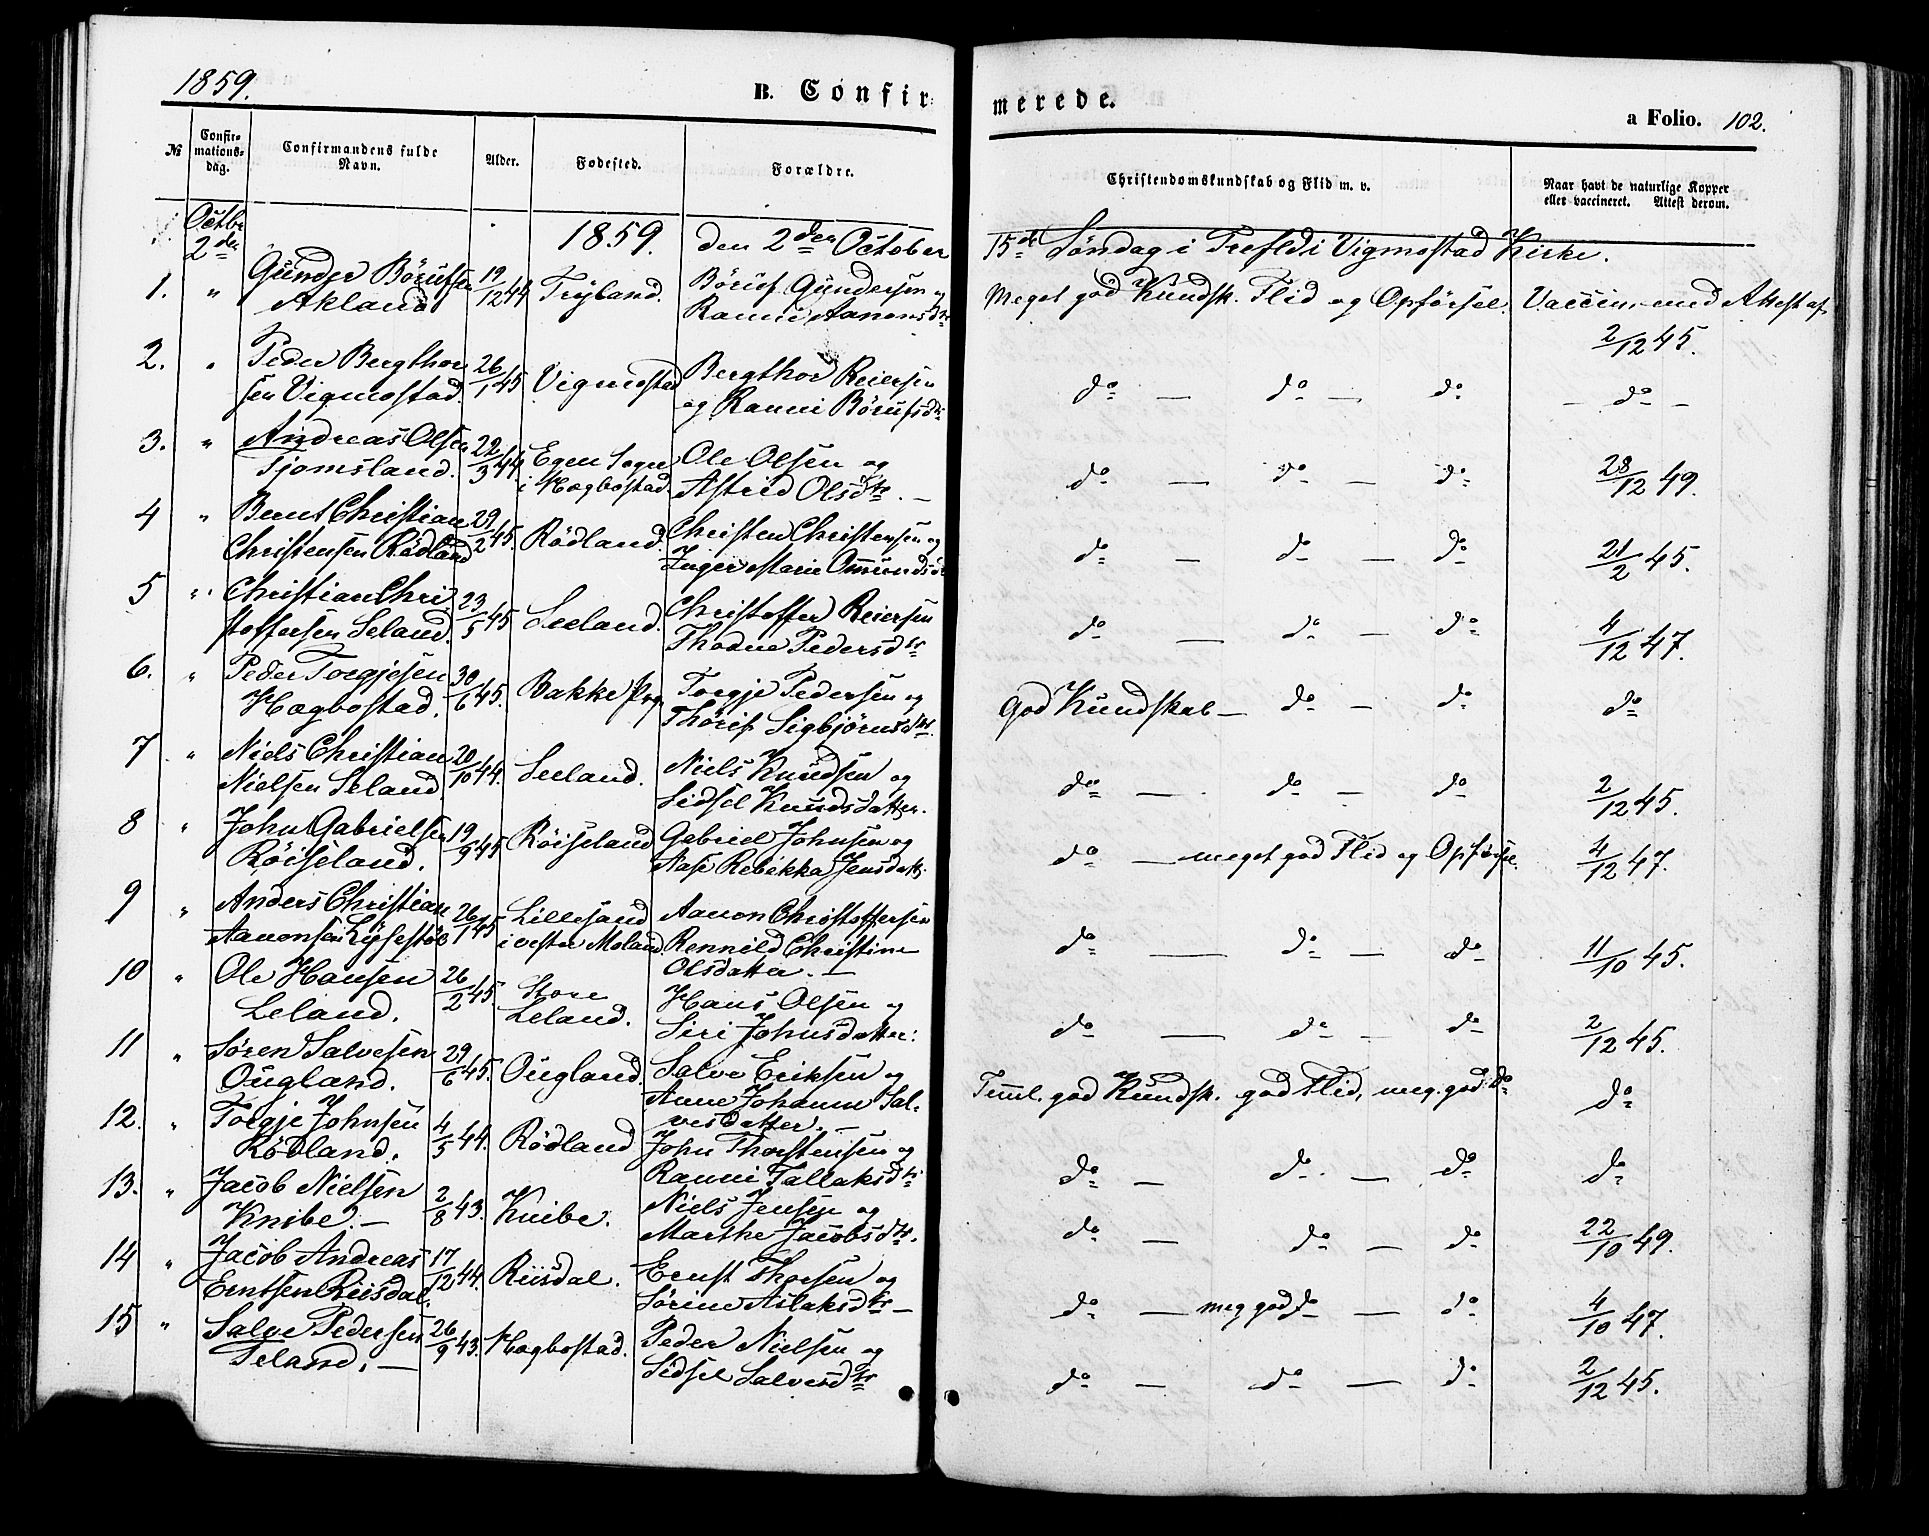 1859.
B. Confir-
merede.
a Folio. 102.
№
Confir-
mations-
dag.
Confirmandens fulde
Navn.
Alder.
Fødested.
Forældre.
Christendomskundskab og Flid m. v.
Naar havt de naturlige Kopper
eller vaccineret. Attest derom.
Octbr
2den
1859. den 2den October
15de Søndag i Trefld i Vigmostad Kirke.
1. " Gunder Børufsen 19/12 44 Tryland. Børuf Gundersen og Meget god Kundsk. Flid og Opførsel. Vaccin. med Attest af
Akland Ranni Aanensdtr 2/12 45.
2. " Peder Bergthor 26/1 45 Vigmostad Bergthor Reiersen do — do — do — do —
sen Vigmostad. og Ranni Børufsdtr
3. " Andreas Olsen 22/3 44 Egen Sogn Ole Olsen og do — do — do 28/12 49.
Tjomsland. i Hægbostad. Astrid Olsdtr. —
4 " Bernt Christian 29/2 45. Rödland. Christen Christensen og do — do — do 21/2 45.
Christensen Rödland Inger Marie Omundsdr
5 " Christian Chri 23/5 45 Seeland. Christoffer Reiersen do — do — do 4/12 47.
stoffersen Seland. Thodne Pedersdtr
6. " Peder Torgjesen 30/6 45. Bakke Prg. Torgje Pedersen og God Kundskab — do — do do
Hægbostad. Thörif Sigbjörnsdtr.
7 " Niels Christian 20/10 44. Seeland. Niels Knudsen og do — do — do 2/12 45.
Nielsen Seland Sidsel Knudsdatter.
8 " John Gabrielsen 19/9 45 Röiseland Gabriel Johnsen og do — meget god Flid og Opførsel. 4/12 47.
Röiseland. Aase Rebekka Jensdatr.
9 " Anders Christian 26/1 45 Lillesand Aanon Christoffersen do — do — do 11/10 45.
Aanonsen Lyssestöl i vestre Moland. Rennild Christine
Olsdatter. —
10 " Ole Hansen 26/2 45. Store Hans Olsen og do — do — do 2/12 45.
Leland. Leland. Siri Johnsdatter.
11 " Sören Salvesen 29/6 45. Ougland. Salve Eriksen og Teml. god Kundsk. god Flid, meg. god do do
Ougland. Anne Johanne Sal-
vesdatter. —
12. " Torgje Johnsen 4/5 44. Rödland John Thorstensen og do — do — do do
Rödland. Ranni Tallaksdtr
13. " Jacob Nielsen 2/8 43. Knibe. Niels Jensen og do — do — do 22/10 49.
Knibe. — Marthe Jacobsdtr.
14 " Jacob Andreas 17/12 44. Riisdal. Ernst Thorsen og do — meg god do — do 4/10 47.
Erntsen Riisdal. Sörine Aslaksdtr —
15 " Salve Pedersen 26/9 43. Hægbostad. Peder Nielsen og do — do — do 2/12 45.
Seland. — Sidsel Salvesdtr